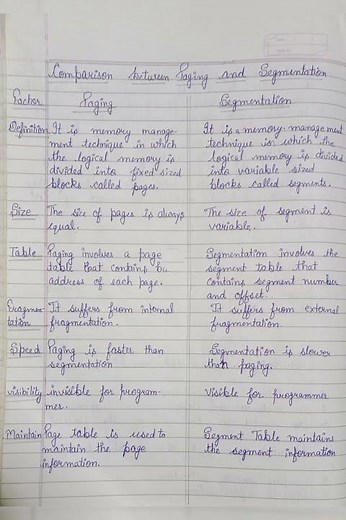 Comparison between Paging and Segmentation
Factor Paging Segmentation
Definition It is memory manage- It is a memory management
ment technique in which technique in which the
the logical memory is logical memory is divided
divided into fixed sized into variable sized
blocks called pages. blocks called segments.
Size The size of pages is always The size of segment is
equal. variable.
Table Paging involves a page Segmentation involves the
table that contains segment table that
address of each page. contains segment number
and offset.
Fragmen- It suffers from internal It suffers from external
tation fragmentation. fragmentation.
Speed Paging is faster than Segmentation is slower
segmentation than paging.
visibility invisible for program- Visible for programmer
mer.
Maintain Page table is used to Segment Table maintains
maintain the page the segment information
information.